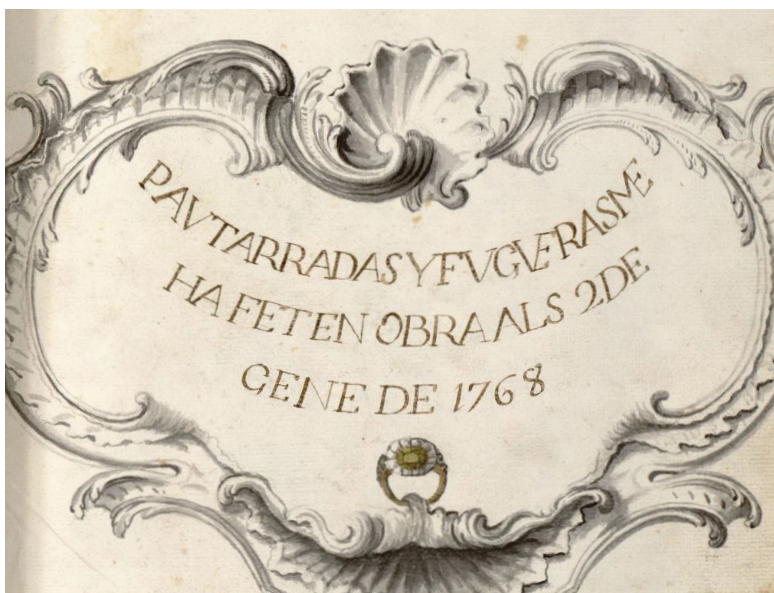 PAVTARRADAS Y FVGVERAS ME
HA FET EN OBRA ALS 2 DE
GENE DE 1768